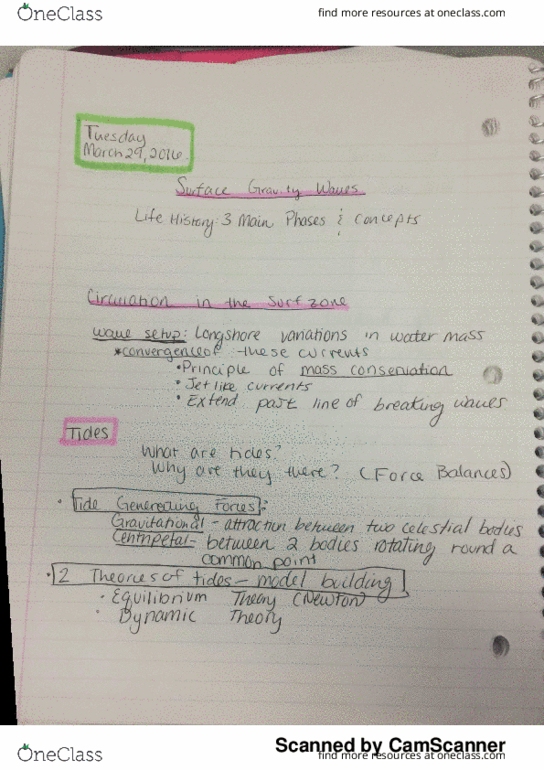 OneClass
find more resources at oneclass.com
Tuesday
March 29, 2016
Surface Gravity Waves
Life History: 3 Main Phases & Concepts
Circulation in the Surf zone
wave setup: Longshore variations in water mass
*convergence of these currents
• Principle of mass conservation
• Jet like currents
• Extend past line of breaking waves
Tides
What are tides?
Why are they there? (Force Balances)
• Tide Generating Forces:
Gravitational - attraction between two celestial bodies
Centripetal - between 2 bodies rotating round a
common point
• 2 Theories of tides - model building
• Equilibrium Theory (Newton)
• Dynamic Theory
Scanned by CamScanner
OneClass
find more resources at oneclass.com